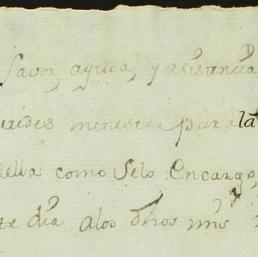 favor, ayuda, y asistencia
menester para la
ella como selo encargo,
te dia alos dhos mrs